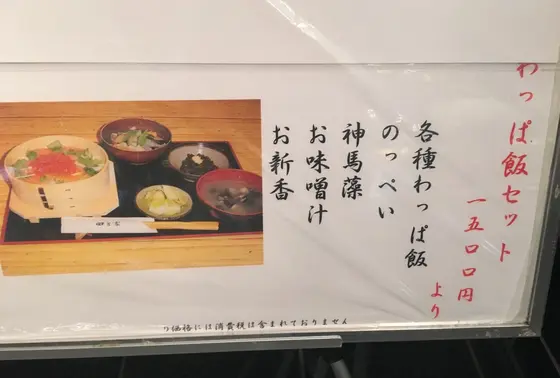 わっぱ飯セット
一五〇〇円
より
各種わっぱ飯
のっぺい
神馬藻
お味噌汁
お新香
価格には消費税は含まれておりません